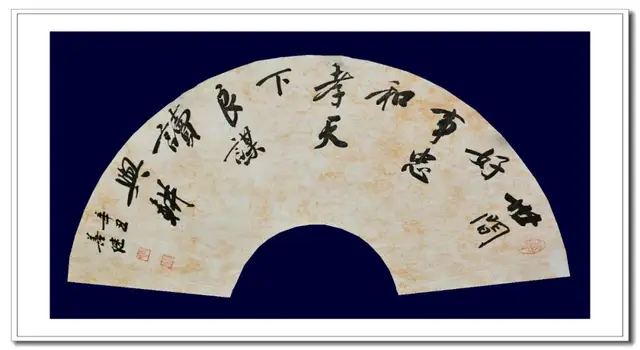 世間
好
事忠
和
孝天
下
良謀
讀
與耕
辛丑